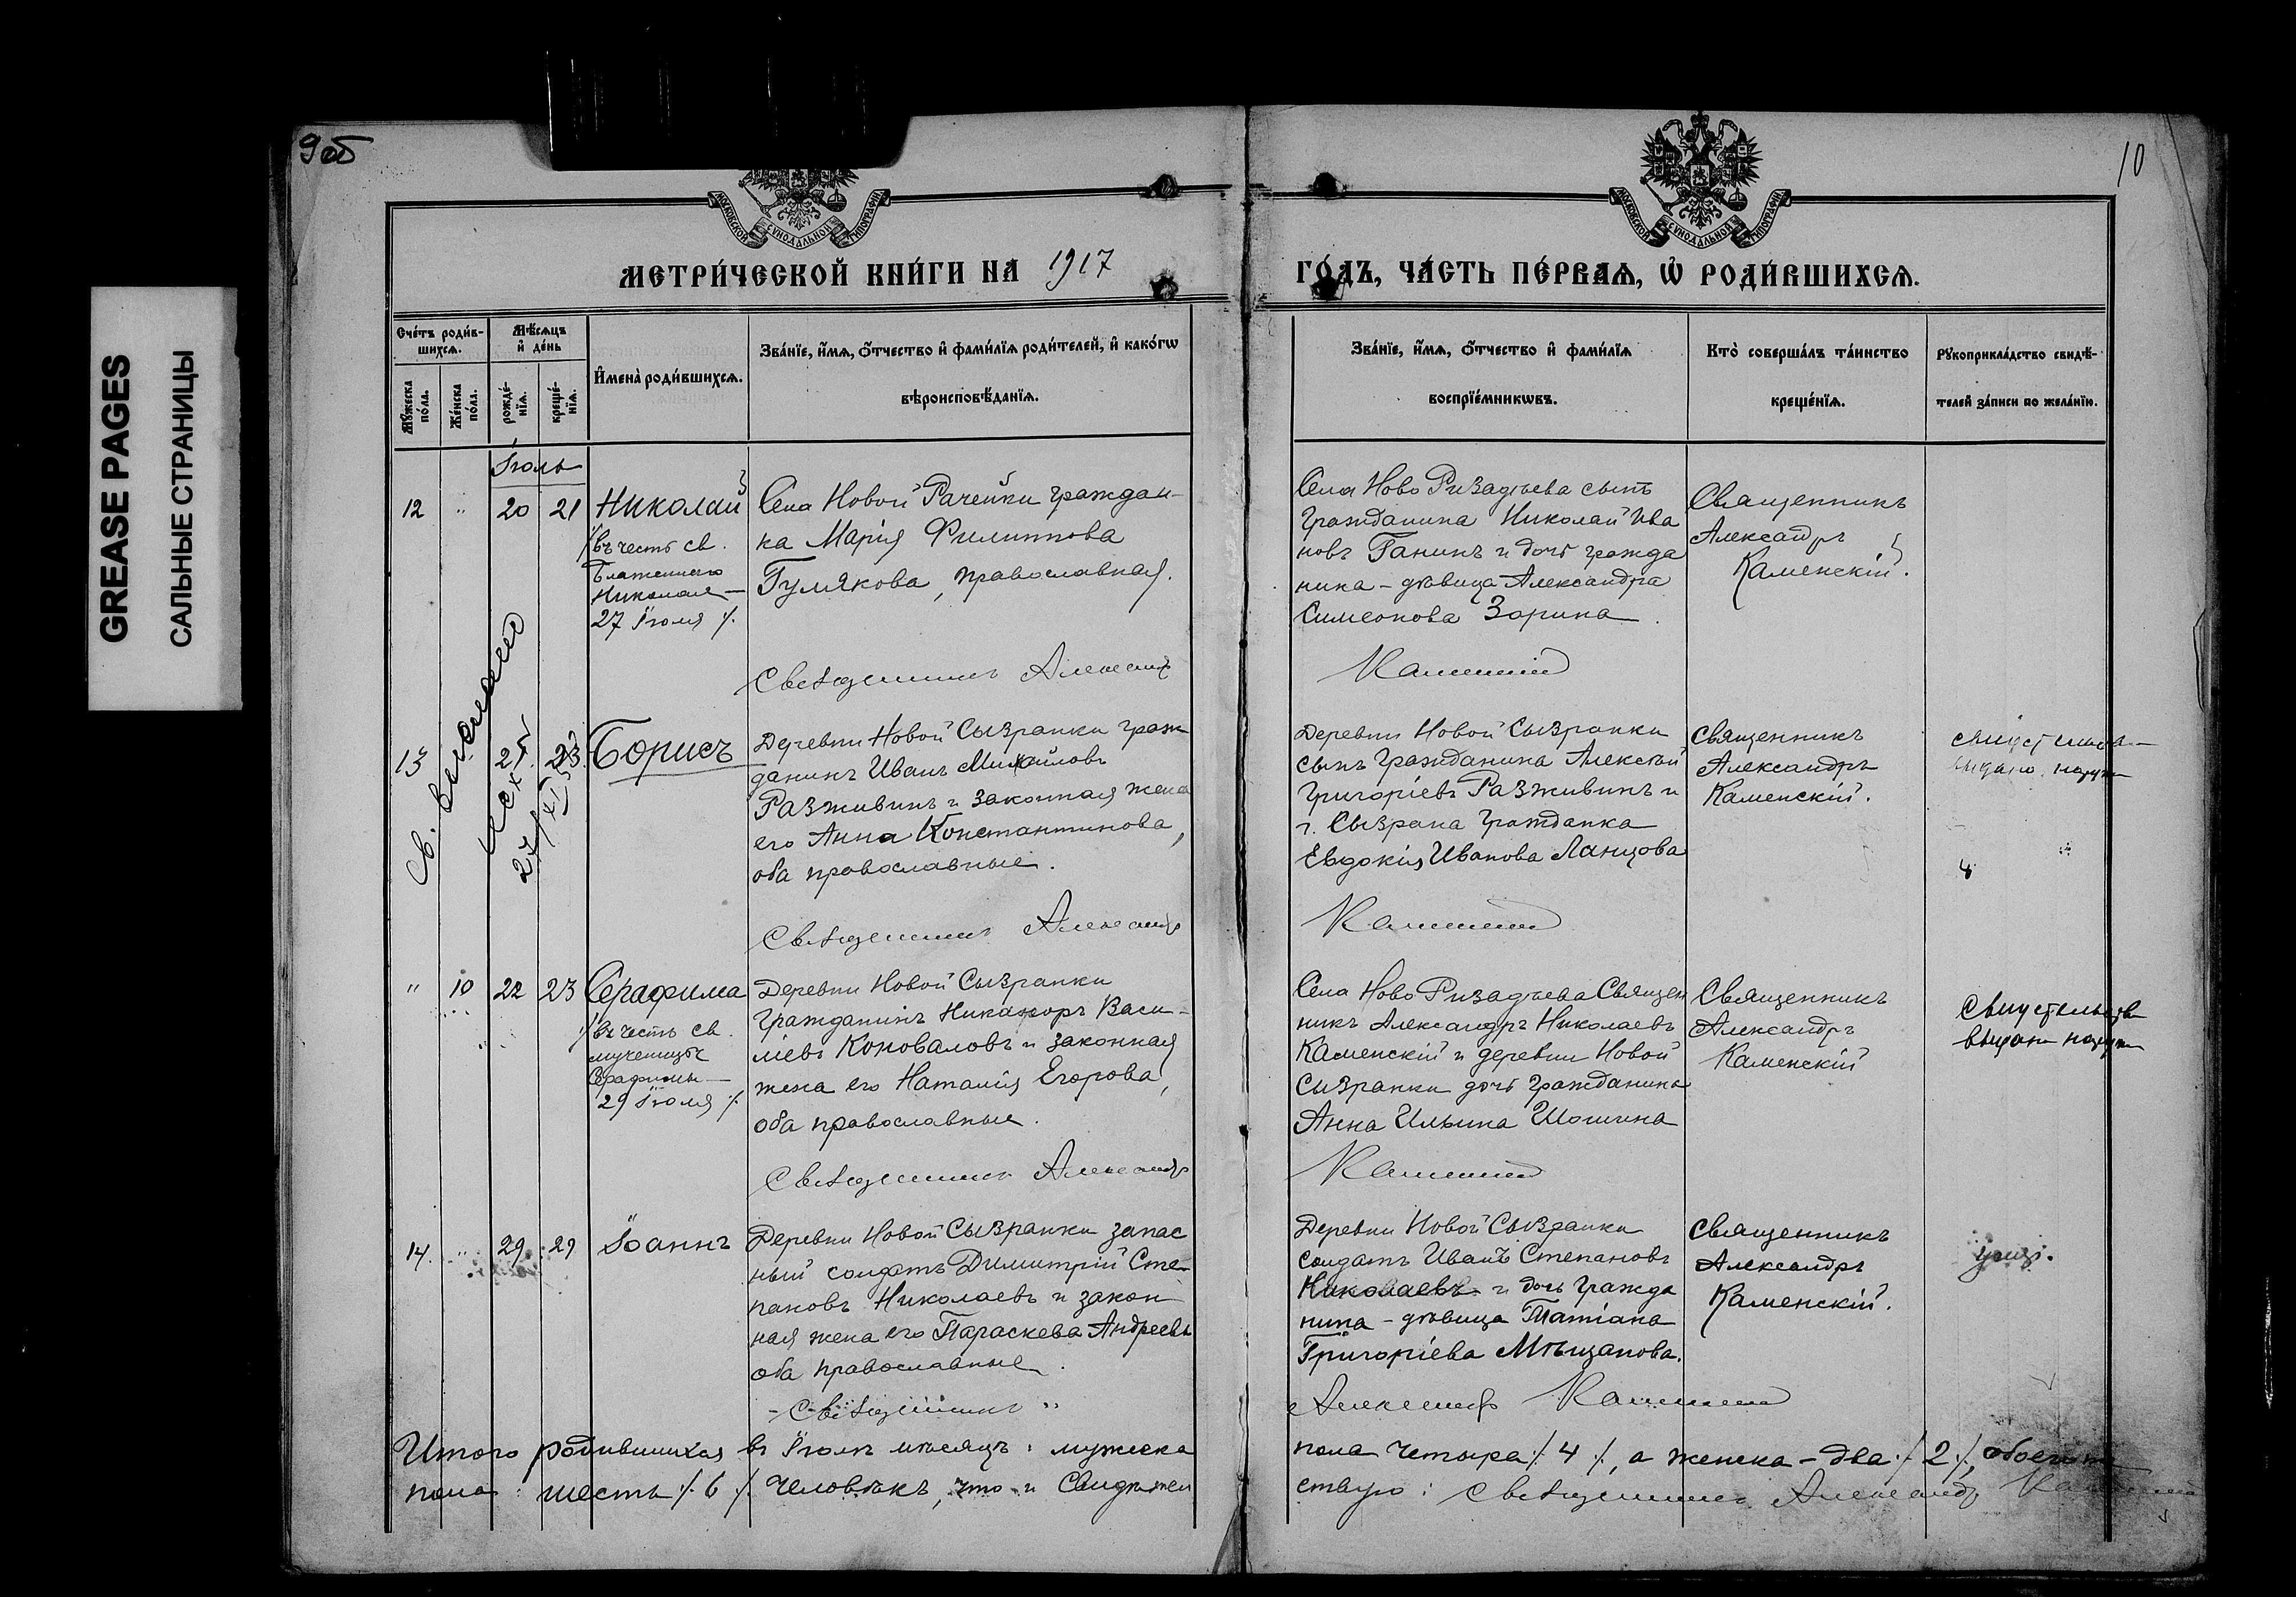 GREASE PAGES
САЛЬНЫЕ СТРАНИЦЫ
9об
10
МОСКОВСКОЙ СѴНОДАЛЬНОЙ ТИПОГРАФІИ
МОСКОВСКОЙ СѴНОДАЛЬНОЙ ТИПОГРАФІИ
МЕТРИ́ЧЕСКОЙ КНИ́ГИ НА 1917
ГО́ДЪ, ЧА́СТЬ ПЕ́РВАѦ, Ѡ҆ РОДИ́ВШИХСѦ.
Сче́тъ роди́в-
шихсѧ.
Мѣ́сѧцъ
и҆ де́нь
Мꙋ́жеска
по́ла.
Же́нска
по́ла.
рожде́-
нїѧ.
креще́-
нїѧ.
И҆мена̀ роди́вшихсѧ.
Зва́нїе, и҆́мѧ, ѻ҆́тчество и҆ фами́лїѧ роди́телей, и҆ како́гѡ
вѣроисповѣ́данїѧ.
Зва́нїе, и҆́мѧ, ѻ҆́тчество и҆ фами́лїѧ
воспрїе́мникѡвъ.
Кто̀ соверша́лъ та́инство
креще́нїѧ.
Рꙋкоприкла́дство свидѣ́-
телей за́писи по жела́нїю.
Іюль
12 " 20 21 Николай
/въ честь св.
Блаженнаго
Николая —
27 Іюля /.
Села Новой Рачейки граждан-
ка Марія Филиппова
Гулякова, православная.
Священникъ Александръ
Села Ново Ризадѣева сынъ
Гражданина Николай Ива
новъ Ганинъ и дочь гражда
нина – дѣвица Александра
Симеонова Зорина.
Каменскій
Священникъ
Александръ
Каменскій.
Св. выслано
27/XI
13 23 Борисъ
Деревни Новой Сызранки граж
данинъ Иванъ Михайловъ
Разживинъ и законная жена
его Анна Константинова,
оба православные.
Священникъ Александръ
Деревни Новой Сызранки
сынъ Гражданина Алексѣй
Григоріевъ Разживинъ и
г. Сызрана Гражданка
Евдокія Иванова Ланцова
Каменскій
Священникъ
Александръ
Каменскій.
" 10 22 23 Серафима
/въ честь св.
мученицы
Серафимы —
29 Іюля /.
Деревни Новой Сызранки
Гражданинъ Никаноръ Васи-
ліевъ Коноваловъ и законная
жена его Наталія Егорова,
оба православные.
Священникъ Александръ
Села Ново Ризадѣева Священ
никъ Александръ Николаевъ
Каменскій и деревни Новой
Сызранки дочь гражданина
Анна Ильина Шошина
Каменскій
Священникъ
Александръ
Каменскій
14. " 29 29 Іоаннъ
Деревни Новой Сызранки запас
ный солдатъ Димитрій Сте-
пановъ Николаевъ и закон
ная жена его Параскева Андреева
оба православные.
– Священникъ "
Деревни Новой Сызранки
солдатъ Иванъ Степановъ
Николаевъ и дочь Гражда
нина – дѣвица Татіана
Григоріева Мѣщанова.
Александръ Каменскій
Священникъ
Александръ
Каменскій.
Итого родившихся въ Іюлѣ мѣсяцѣ: мужеска
пола четыра /. 4 /., а женска – два /. 2 /., обоего
пола: шесть /. 6 /. человѣкъ, что и Свидѣтель
ствую: Священникъ Александръ Каменскій